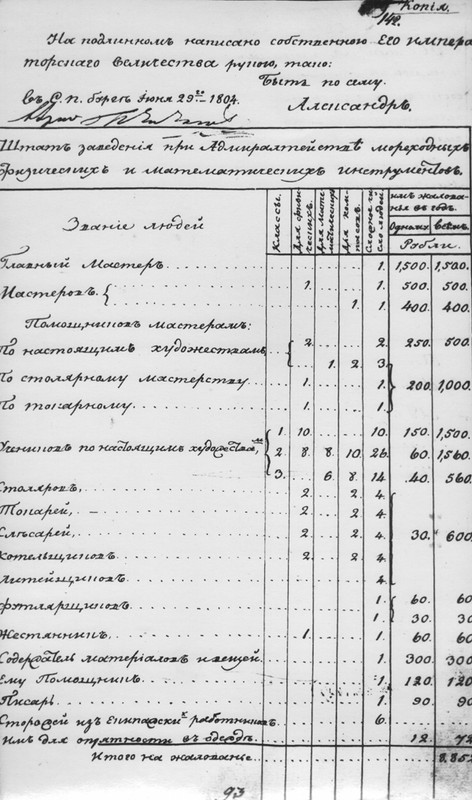 Копія.
142.
На подлинномъ написано собственною Его импера
торскаго величества рукою, тако:
Быть по сему.
въ С. п. бургѣ Іюня 29го 1804.
Александръ.
Штатъ заведенія при Адмиралтействѣ мореходныхъ
физическихъ и математическихъ инструментовъ.
Званіе людей
Классы.
Для физи-
ческихъ.
Для ком-
пасовъ.
имъ жалова-
нья въ годъ.
Одному. всѣмъ.
Рубли.
Главный Мастеръ 1. 1,500. 1,500.
Мастеровъ. 1. 1. 500. 500.
1. 1. 400. 400.
Помощниковъ мастерамъ:
По настоящимъ художествамъ 2. 2. 250. 500.
1. 2. 3.
По столярному мастерству 1. 1. 200. 1,000.
По токарному 1. 1.
1. 10. 10. 150. 1,500.
Учениковъ по настоящимъ художества, 2. 8. 8. 10. 26. 60. 1,560.
3. 6. 8. 14. 40. 560.
Столяровъ, 2. 2. 4.
Токарей, 2. 2. 4.
Слѣсарей, 2. 2. 4. 30. 600.
Котельщиковъ 2. 2. 4.
Литейщиковъ 4.
Футлярщиковъ 1. 60. 60
1. 30. 30
Жестянникъ, 1. 1. 60. 60
Содержатель матеріаловъ и вещей. 1. 300. 300
Ему Помощникъ 1. 120. 120
Писарь 1. 90. 90
Сторожей изъ работниковъ 6.
имъ для опрятности въ одеждѣ 12. 72
Итого на жалованье 8.852
93